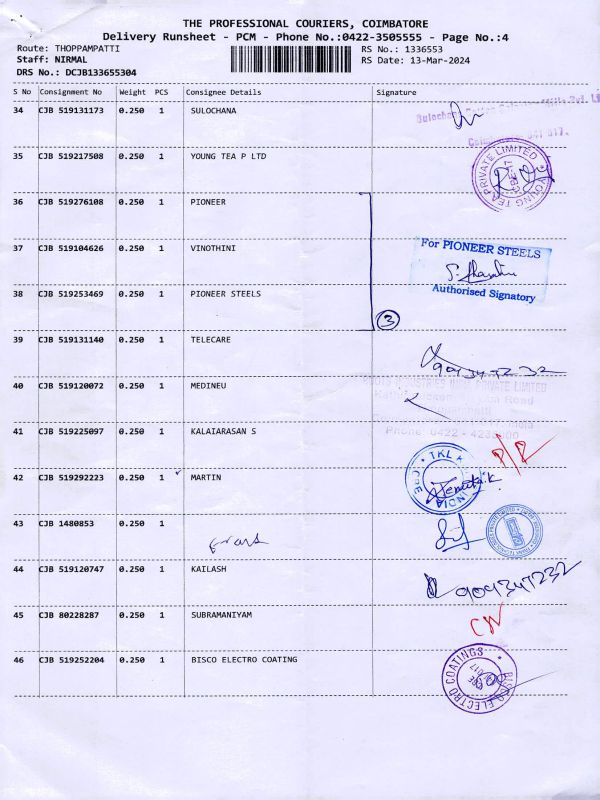 THE PROFESSIONAL COURIERS, COIMBATORE
Delivery Runsheet - PCM - Phone No.:0422-3505555 - Page No.:4
Route: THOPPAMPATTI
RS No.: 1336553
Staff: NIRMAL
RS Date: 13-Mar-2024
DRS No.: DCJB133655304
S No Consignment No Weight PCS Consignee Details Signature
34 CJB 519131173 0.250 1 SULOCHANA
35 CJB 519217508 0.250 1 YOUNG TEA P LTD
YOUNG TEA PRIVATE LIMITED
36 CJB 519276108 0.250 1 PIONEER
37 CJB 519104626 0.250 1 VINOTHINI
For PIONEER STEELS
Authorised Signatory
38 CJB 519253469 0.250 1 PIONEER STEELS
3
39 CJB 519131140 0.250 1 TELECARE
40 CJB 519120072 0.250 1 MEDINEU
PRIVATE LIMITED
Road
41 CJB 519225097 0.250 1 KALAIARASAN S
Phone: 0422 -
TKL
INDIA
42 CJB 519292223 0.250 1 MARTIN
43 CJB 1480853 0.250 1
44 CJB 519120747 0.250 1 KAILASH
45 CJB 80228287 0.250 1 SUBRAMANIYAM
46 CJB 519252204 0.250 1 BISCO ELECTRO COATING
BISCO ELECTRO COATINGS